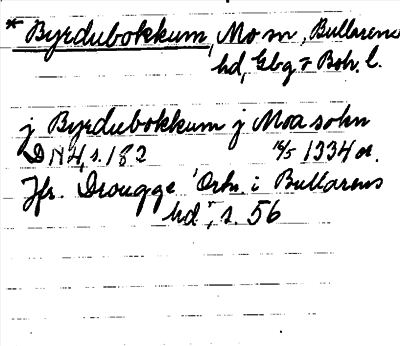 * Byrdubokkum, Mo sn, Bullarens
hd, Gbg o Boh. l.
j Byrdubokkum j Moa sohn
DN 4, s. 182 16/5 1334 a.
Jfr. Drougge "Ortn. i Bullarens
hd", s. 56